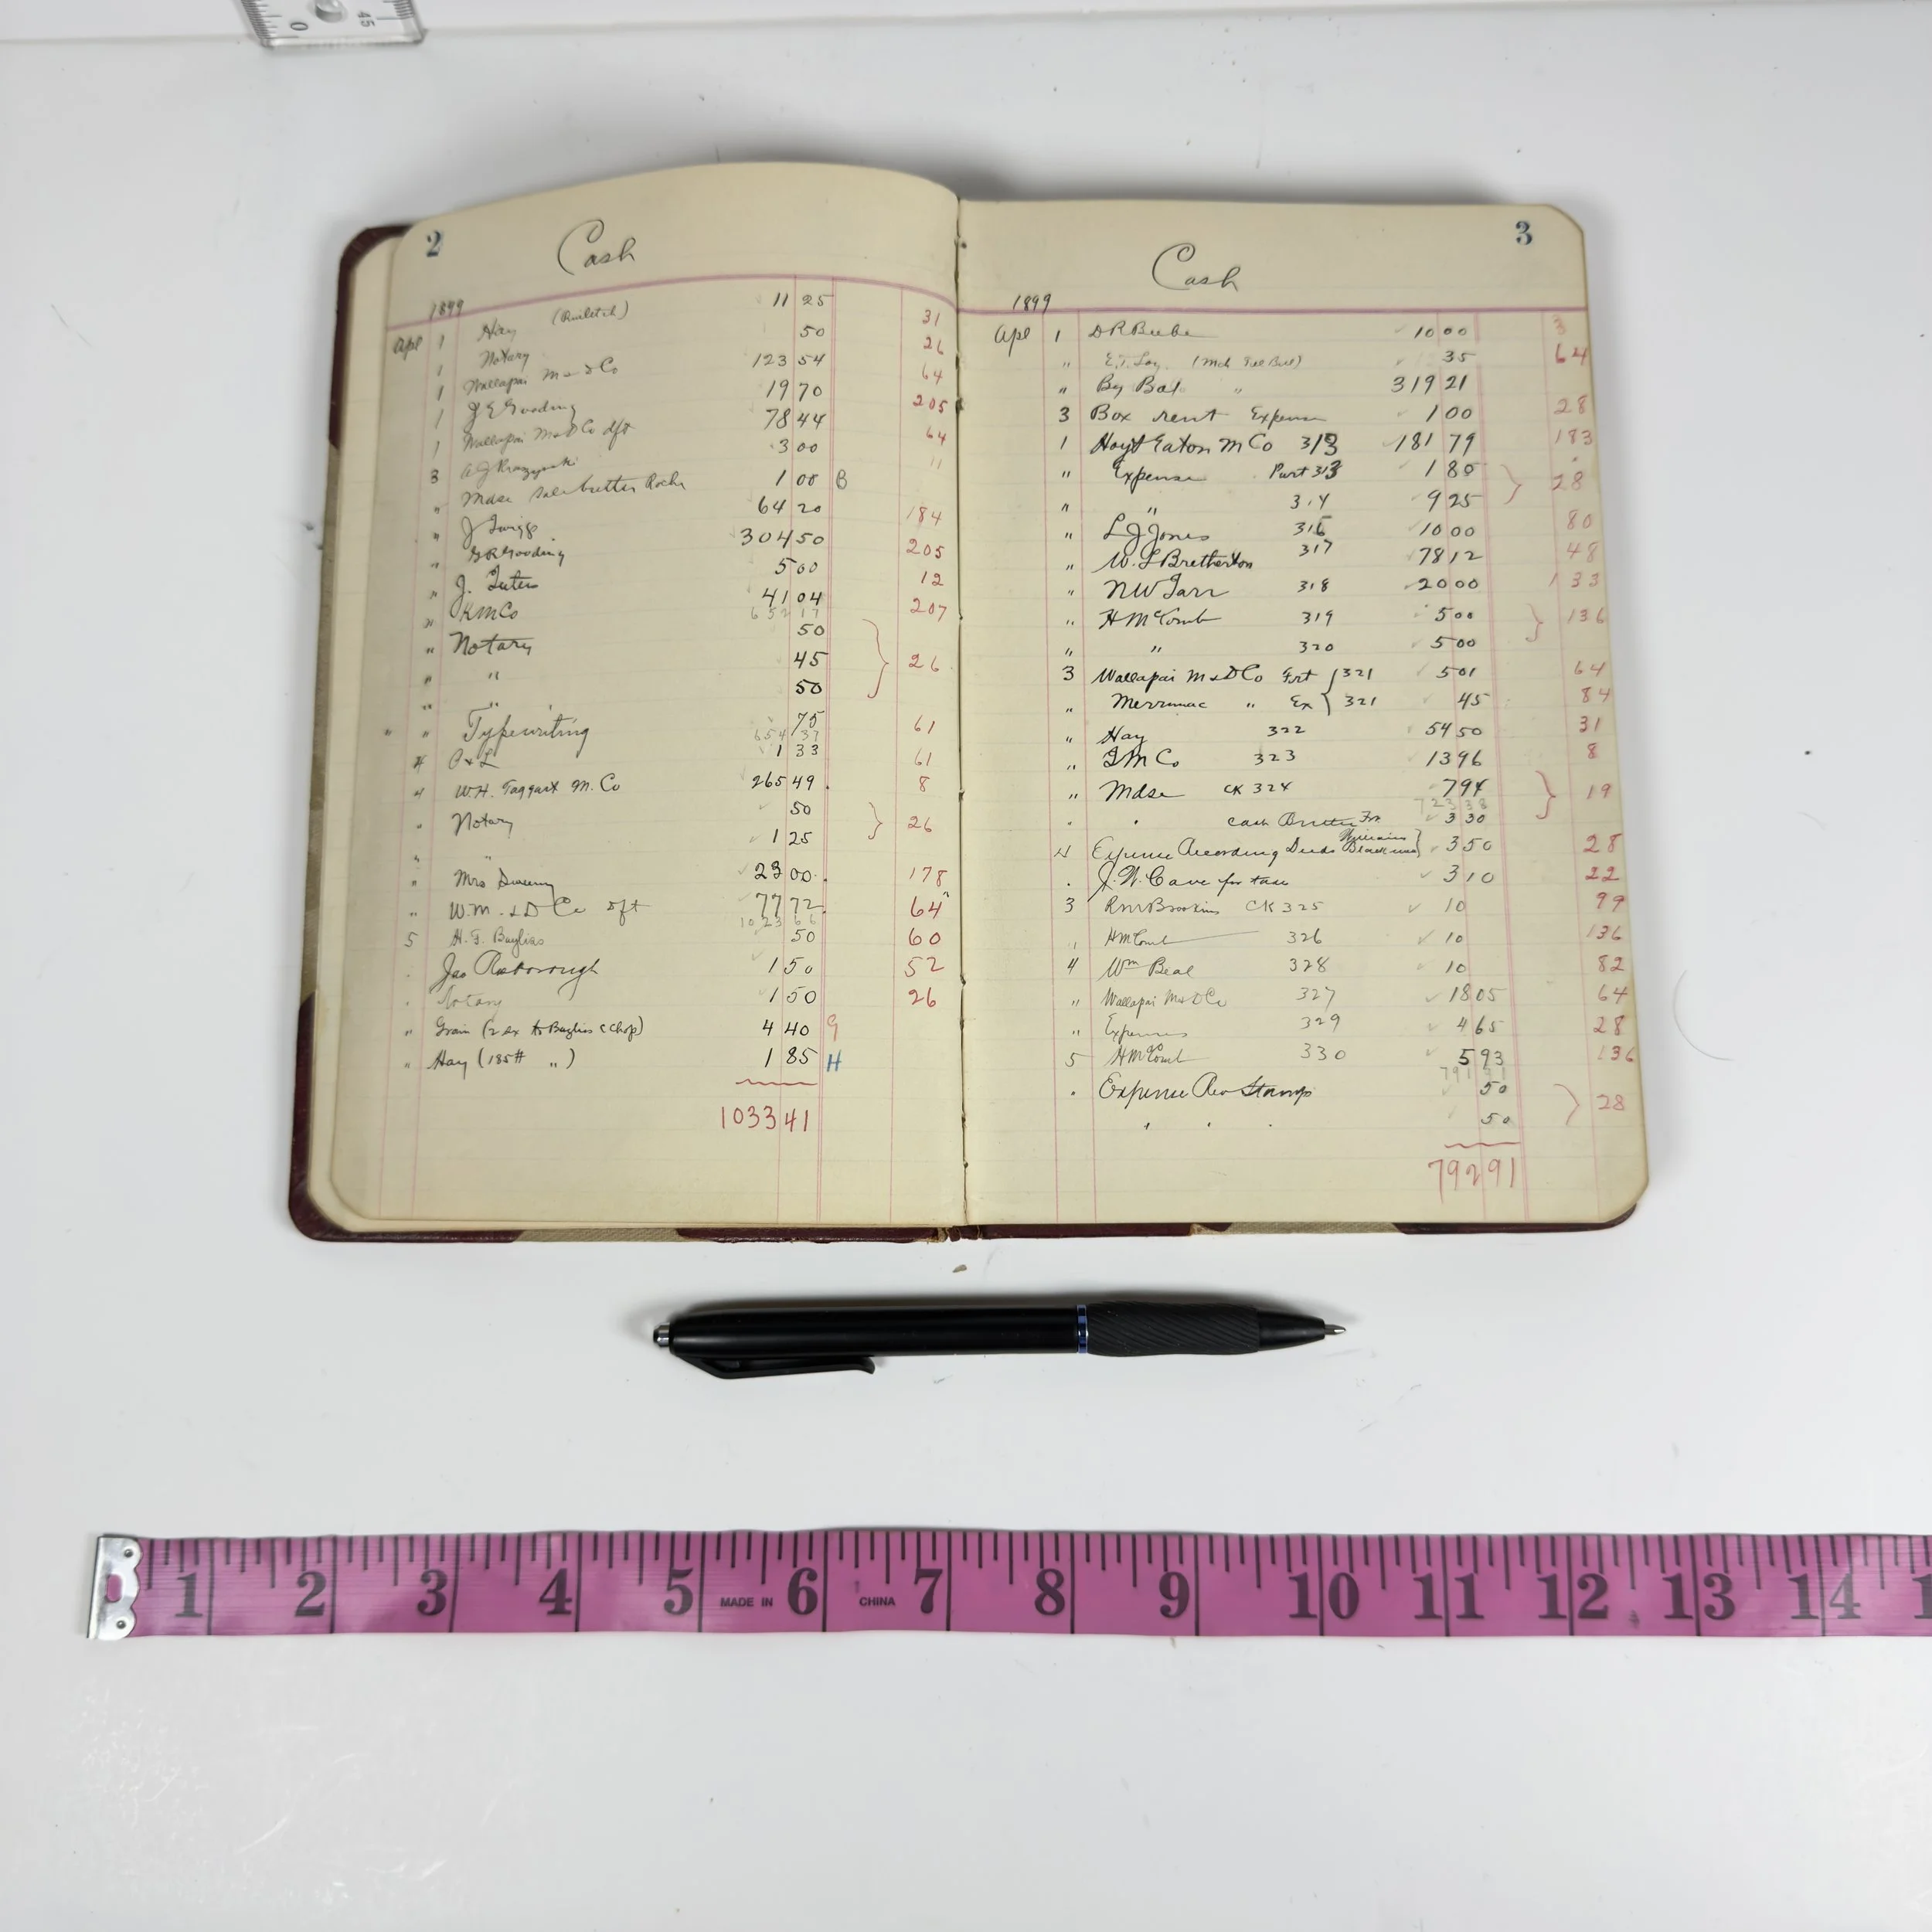 0 45
2
Cash
1899
Apl 1 Hay 11 25 31
1 Notary 50 26
1 Wallapai M & D Co 123 54 64
1 J E Gooding 19 70 205
1 Wallapai M & D Co dft 78 44 64
3 3 00 11
" Mdse butter 1 00 B
" J Twiggs 64 20 184
" G R Gooding 304 50 205
" J. 5 00 12
" K M Co 41 04 207
652 17
" Notary 50
" " 45 } 26
" " 50
" " Typewriting 75 61
654 37
4 C & L 1 33 61
" W. H. Taggart M. Co 265 49 8
" Notary 50 } 26
" " 1 25
" Mrs 23 00 178
" W. M. & D Co dft 77 72 64
1023 66
5 H. F. Bayliss 50 60
" Jas Roseborough 1 50 52
" Notary 1 50 26
" Grain (2 sx to Bayliss & Chop) 4 40 G
" Hay (185# ") 1 85 H
1033 41
3
Cash
1899
Apl 1 D R Beebe 10 00 3
" E. F. 35 64
" By Bal " 319 21
3 Box rent Expense 1 00 28
1 Hoyt Eaton M Co 313 181 79 183
" Expense Part 313 1 80 } 28
" " 314 9 25
" L J Jones 315 10 00 80
" W. L Bretherton 317 78 12 48
" N W Tarr 318 20 00 133
" H McComb 319 5 00 } 136
" " 320 5 00
3 Wallapai M & D Co Frt { 321 5 01 64
" Merrimac " Ex { 321 45 84
" Hay 322 54 50 31
" T M Co 323 13 96 8
" Mdse CK 324 7 94 } 19
723 38
" " Cash Butter 3 30
4 Expense Recording Deeds 3 50 28
" J. W. Cave for taxes 3 10 22
3 R M Brookins CK 325 10 99
" H McComb 326 10 136
4 Wm Beal 328 10 82
" Wallapai M & D Co 327 18 05 64
" Expenses 329 4 65 28
5 H McComb 330 5 93 136
791 91
" Expense Rev Stamps 50 } 28
" " " 50
792 91
1 2 3 4 5 MADE IN 6 CHINA 7 8 9 10 11 12 13 14 1